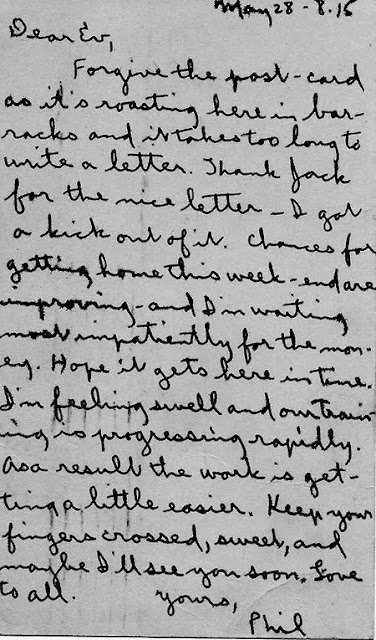 May 28 - 8.15
Dear Ev,
Forgive the post-card
as it's roasting here in bar-
racks and it takes too long to
write a letter. Thank Jack
for the nice letter - I got
a kick out of it. Chances for
getting home this week-end are
improving - and I'm waiting
most impatiently for the mon-
ey. Hope it gets here in time.
I'm feeling swell and our train-
ing is progressing rapidly.
As a result the work is get-
ting a little easier. Keep your
fingers crossed, sweet, and
maybe I'll see you soon. Love
to all. yours,
Phil